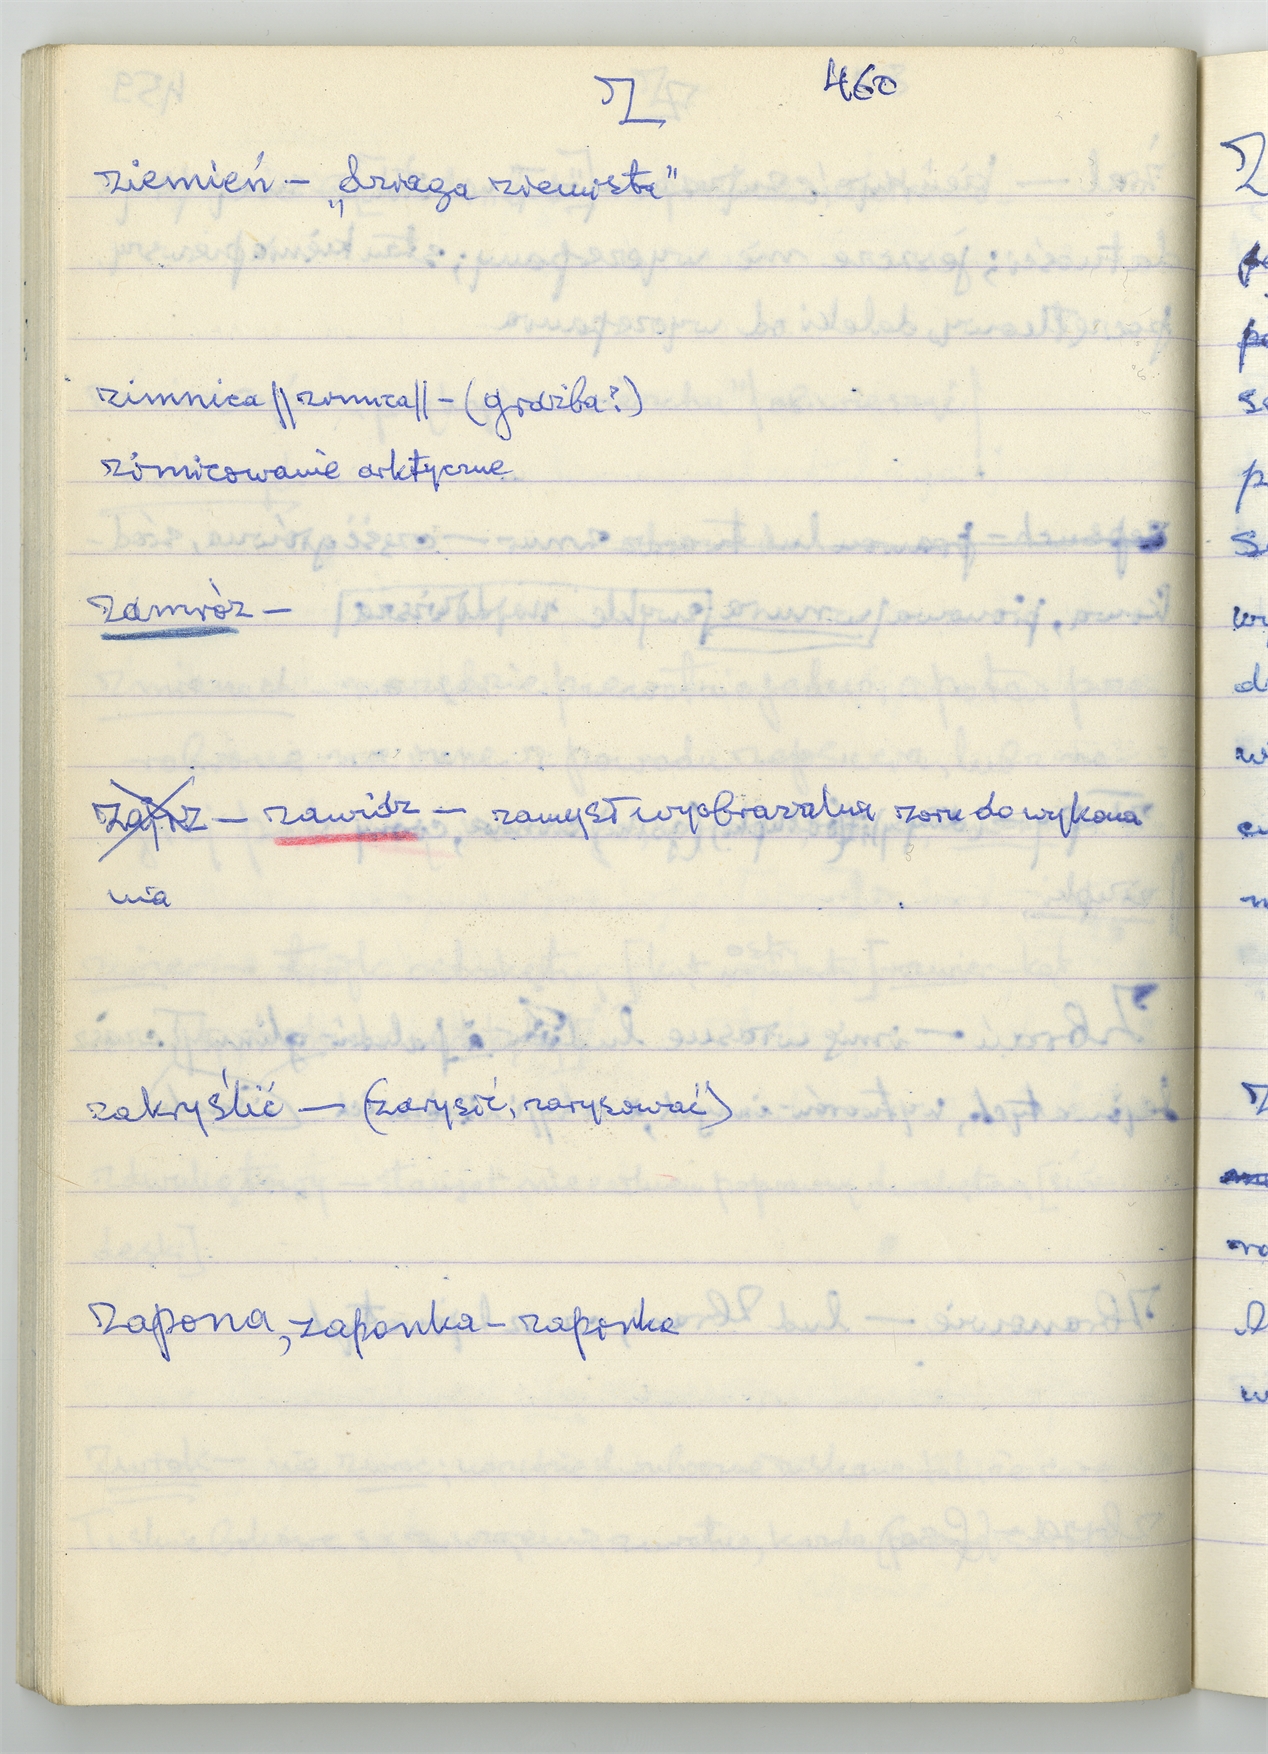 Z 460
ziemień – „drzazga ziemista"
zimnica || zomica || – (groźba?)
zimicowanie arktyczne
zamróz –
zajrz – zawidz – zamysł wyobrażalny zaru do wykona
nia
zakryślić – (zarysić, zarysować)
zapona, zaponka – zaponka